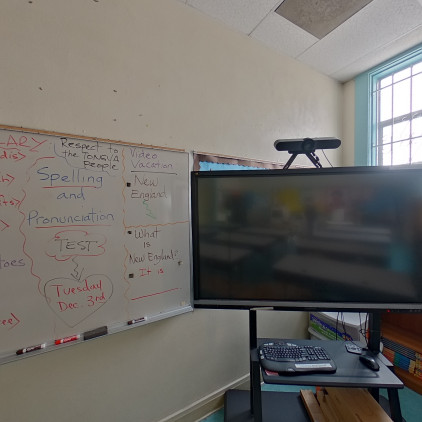 ARY
Respect to
the TONGVA
People
d(s)
Spelling
and
Pronunciation
TEST
Tuesday
Dec 3rd
Video
Vacation
New
England
What
is
New England?
It is
toes
ree)